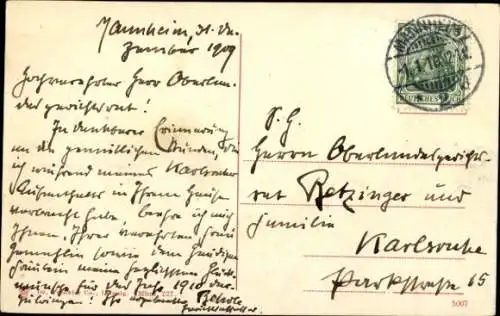 Mannheim, 31. De-
zember 1909
Hochverehrter Herr Oberlan-
desgerichtsrat!
In dankbarer Erinnerung
an die gemütlichen Stunden, die
ich während meines Karlsruher
Aufenthalts in Ihrem Hause
verbracht habe, beehre ich mich
Ihnen, Ihrer verehrten Frau
Gemahlin sowie dem gnädigen
Fräulein meine herzlichsten Glück-
wünsche für das Jahr 1910 dar-
zubringen! Ihr ergebenster
S. H.
Herrn Oberlandesgerichts-
rat Betzinger und
Familie
Karlsruhe
Parkstraße 65
MANNHEIM
DEUTSCHES REICH
5007